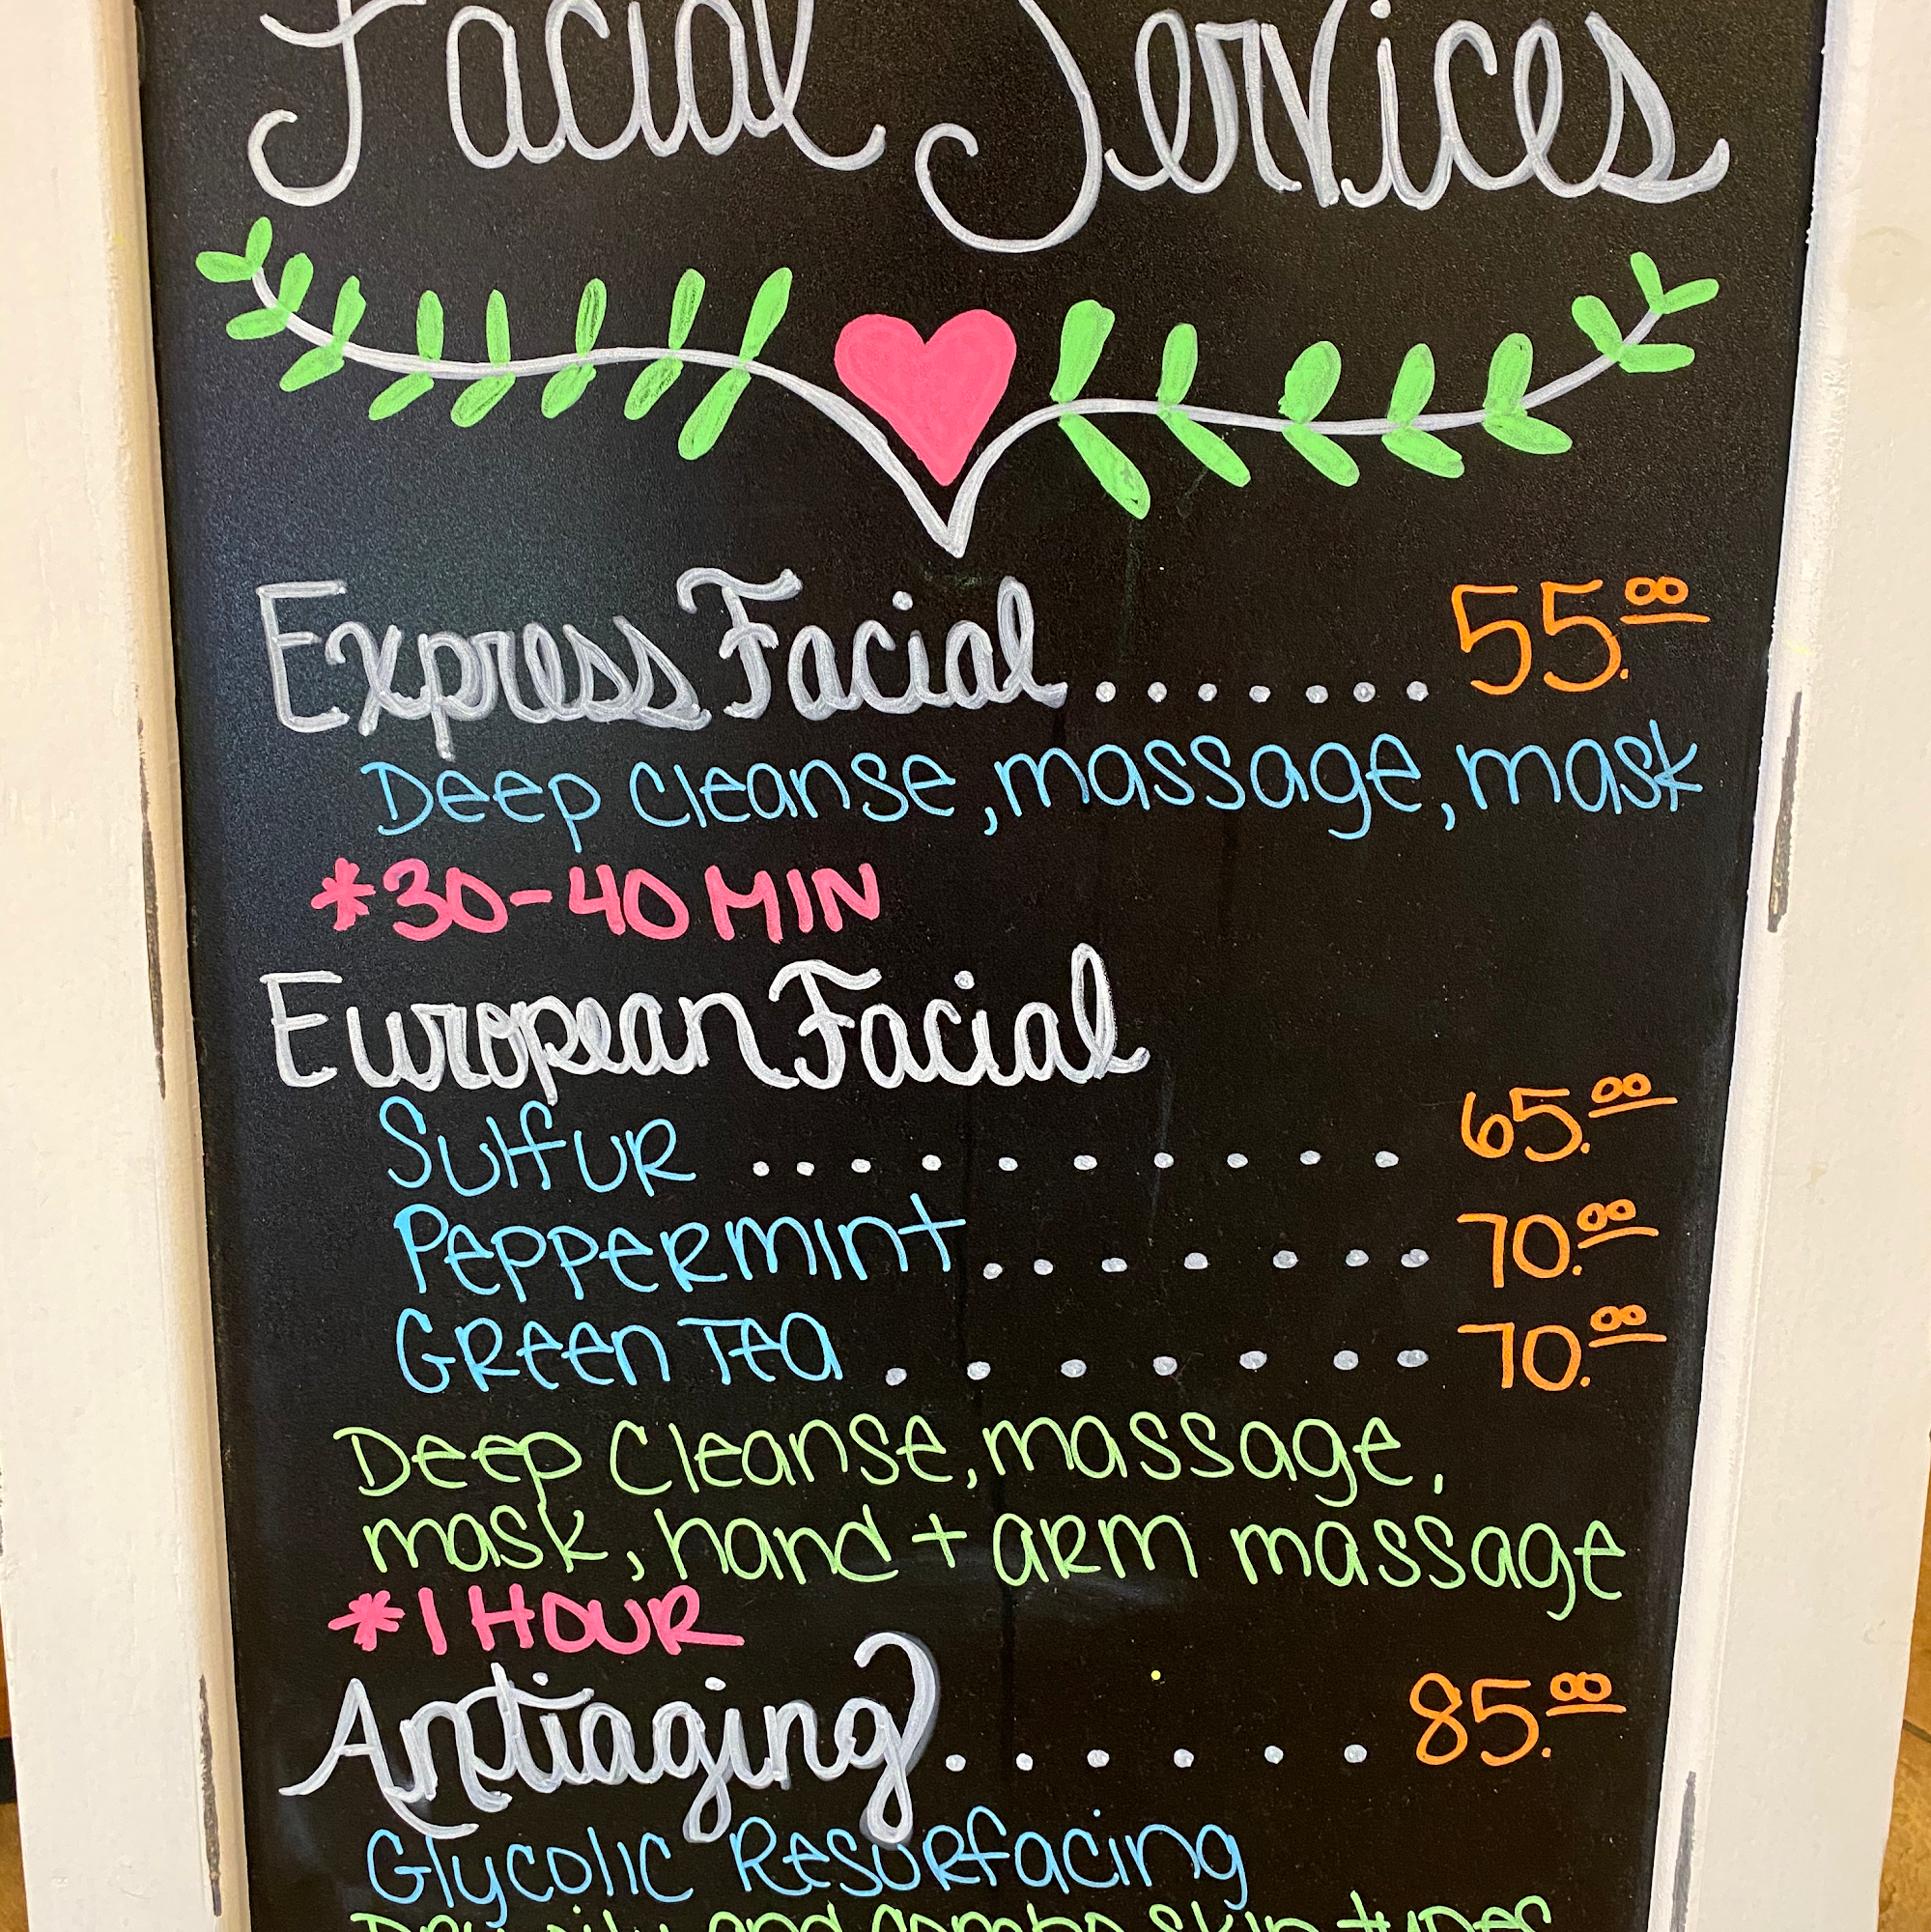 Facial Services
Express Facial ....... 55.00
Deep Cleanse, massage, mask
*30-40 MIN
European Facial
Sulfur .......... 65.00
Peppermint ....... 70.00
Green Tea ....... 70.00
Deep Cleanse, massage,
mask, hand + arm massage
*1 HOUR
Antiaging ...... 85.00
Glycolic Resurfacing
Dry, oily and combo skin types